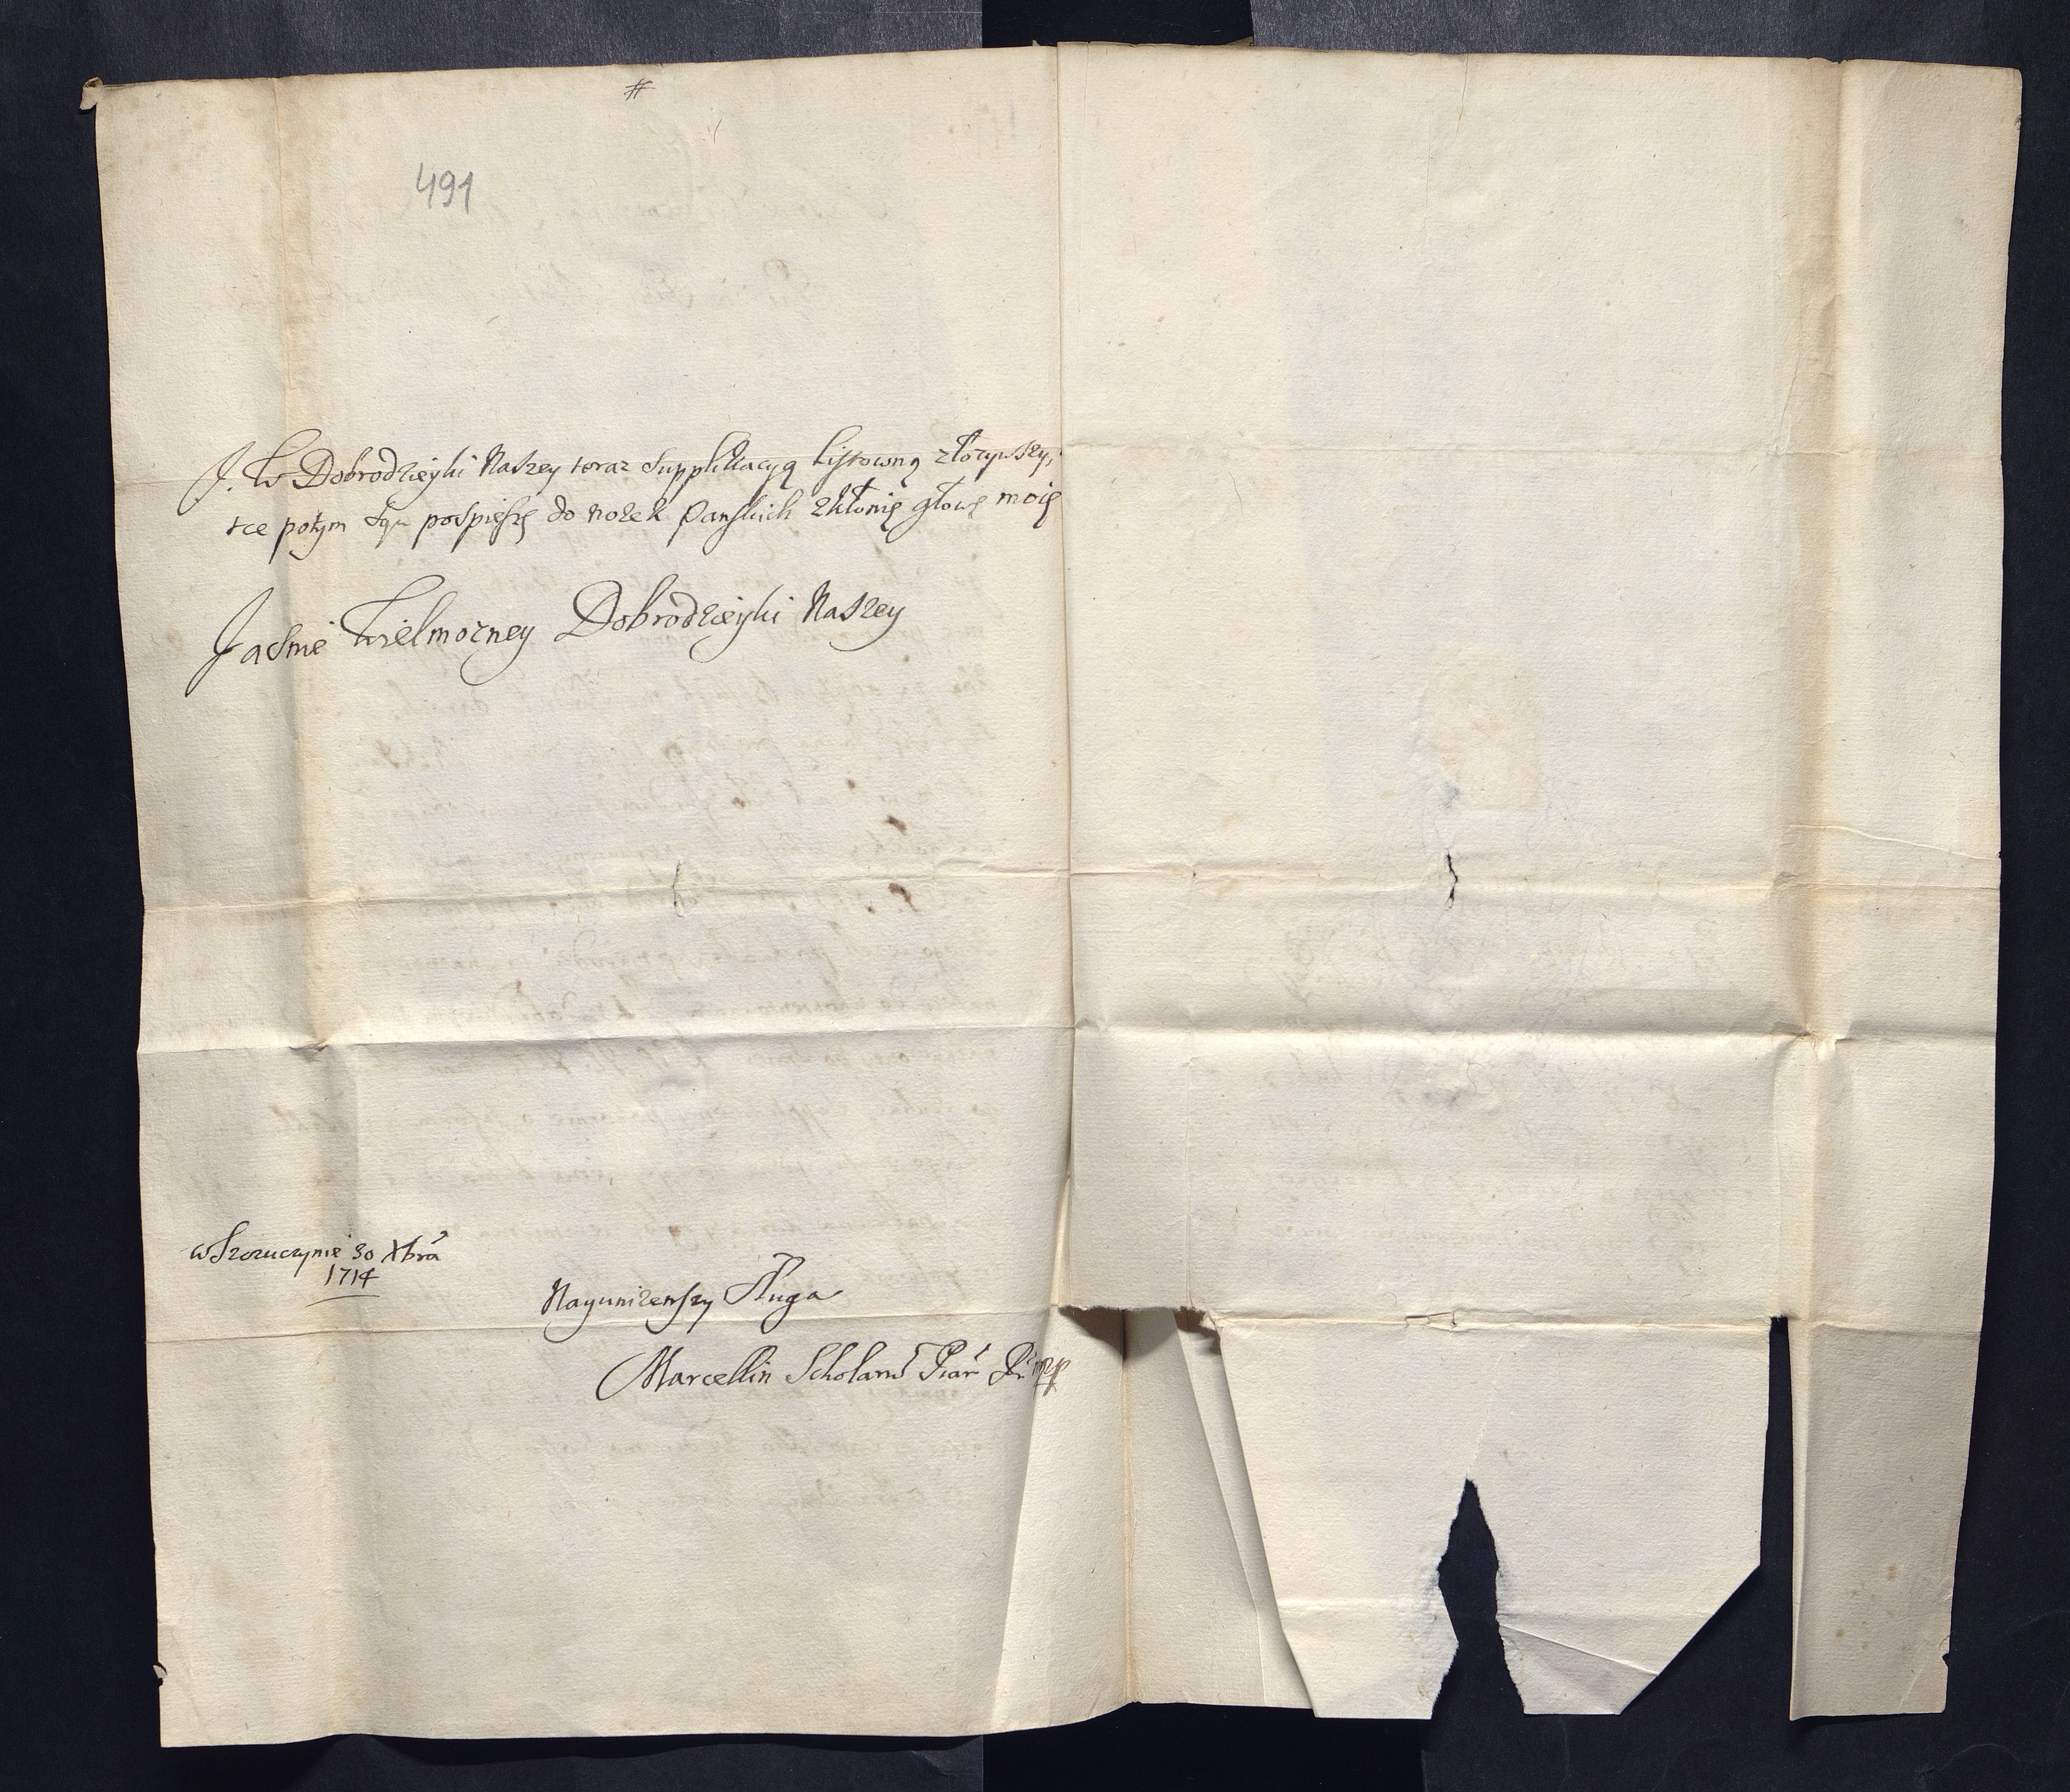 #
491
J. W Dobrodzieyki Naszey teraz supplikacyą listowną złożywszy,
pospieszę do nożek Panskich skłonię głowę moię
Jasnie Wielmozney Dobrodzieyki Naszey
w Szczuczynie 30 Xbra
1714
Nayunizenszy Sługa
Marcellin Scholarũ Piar